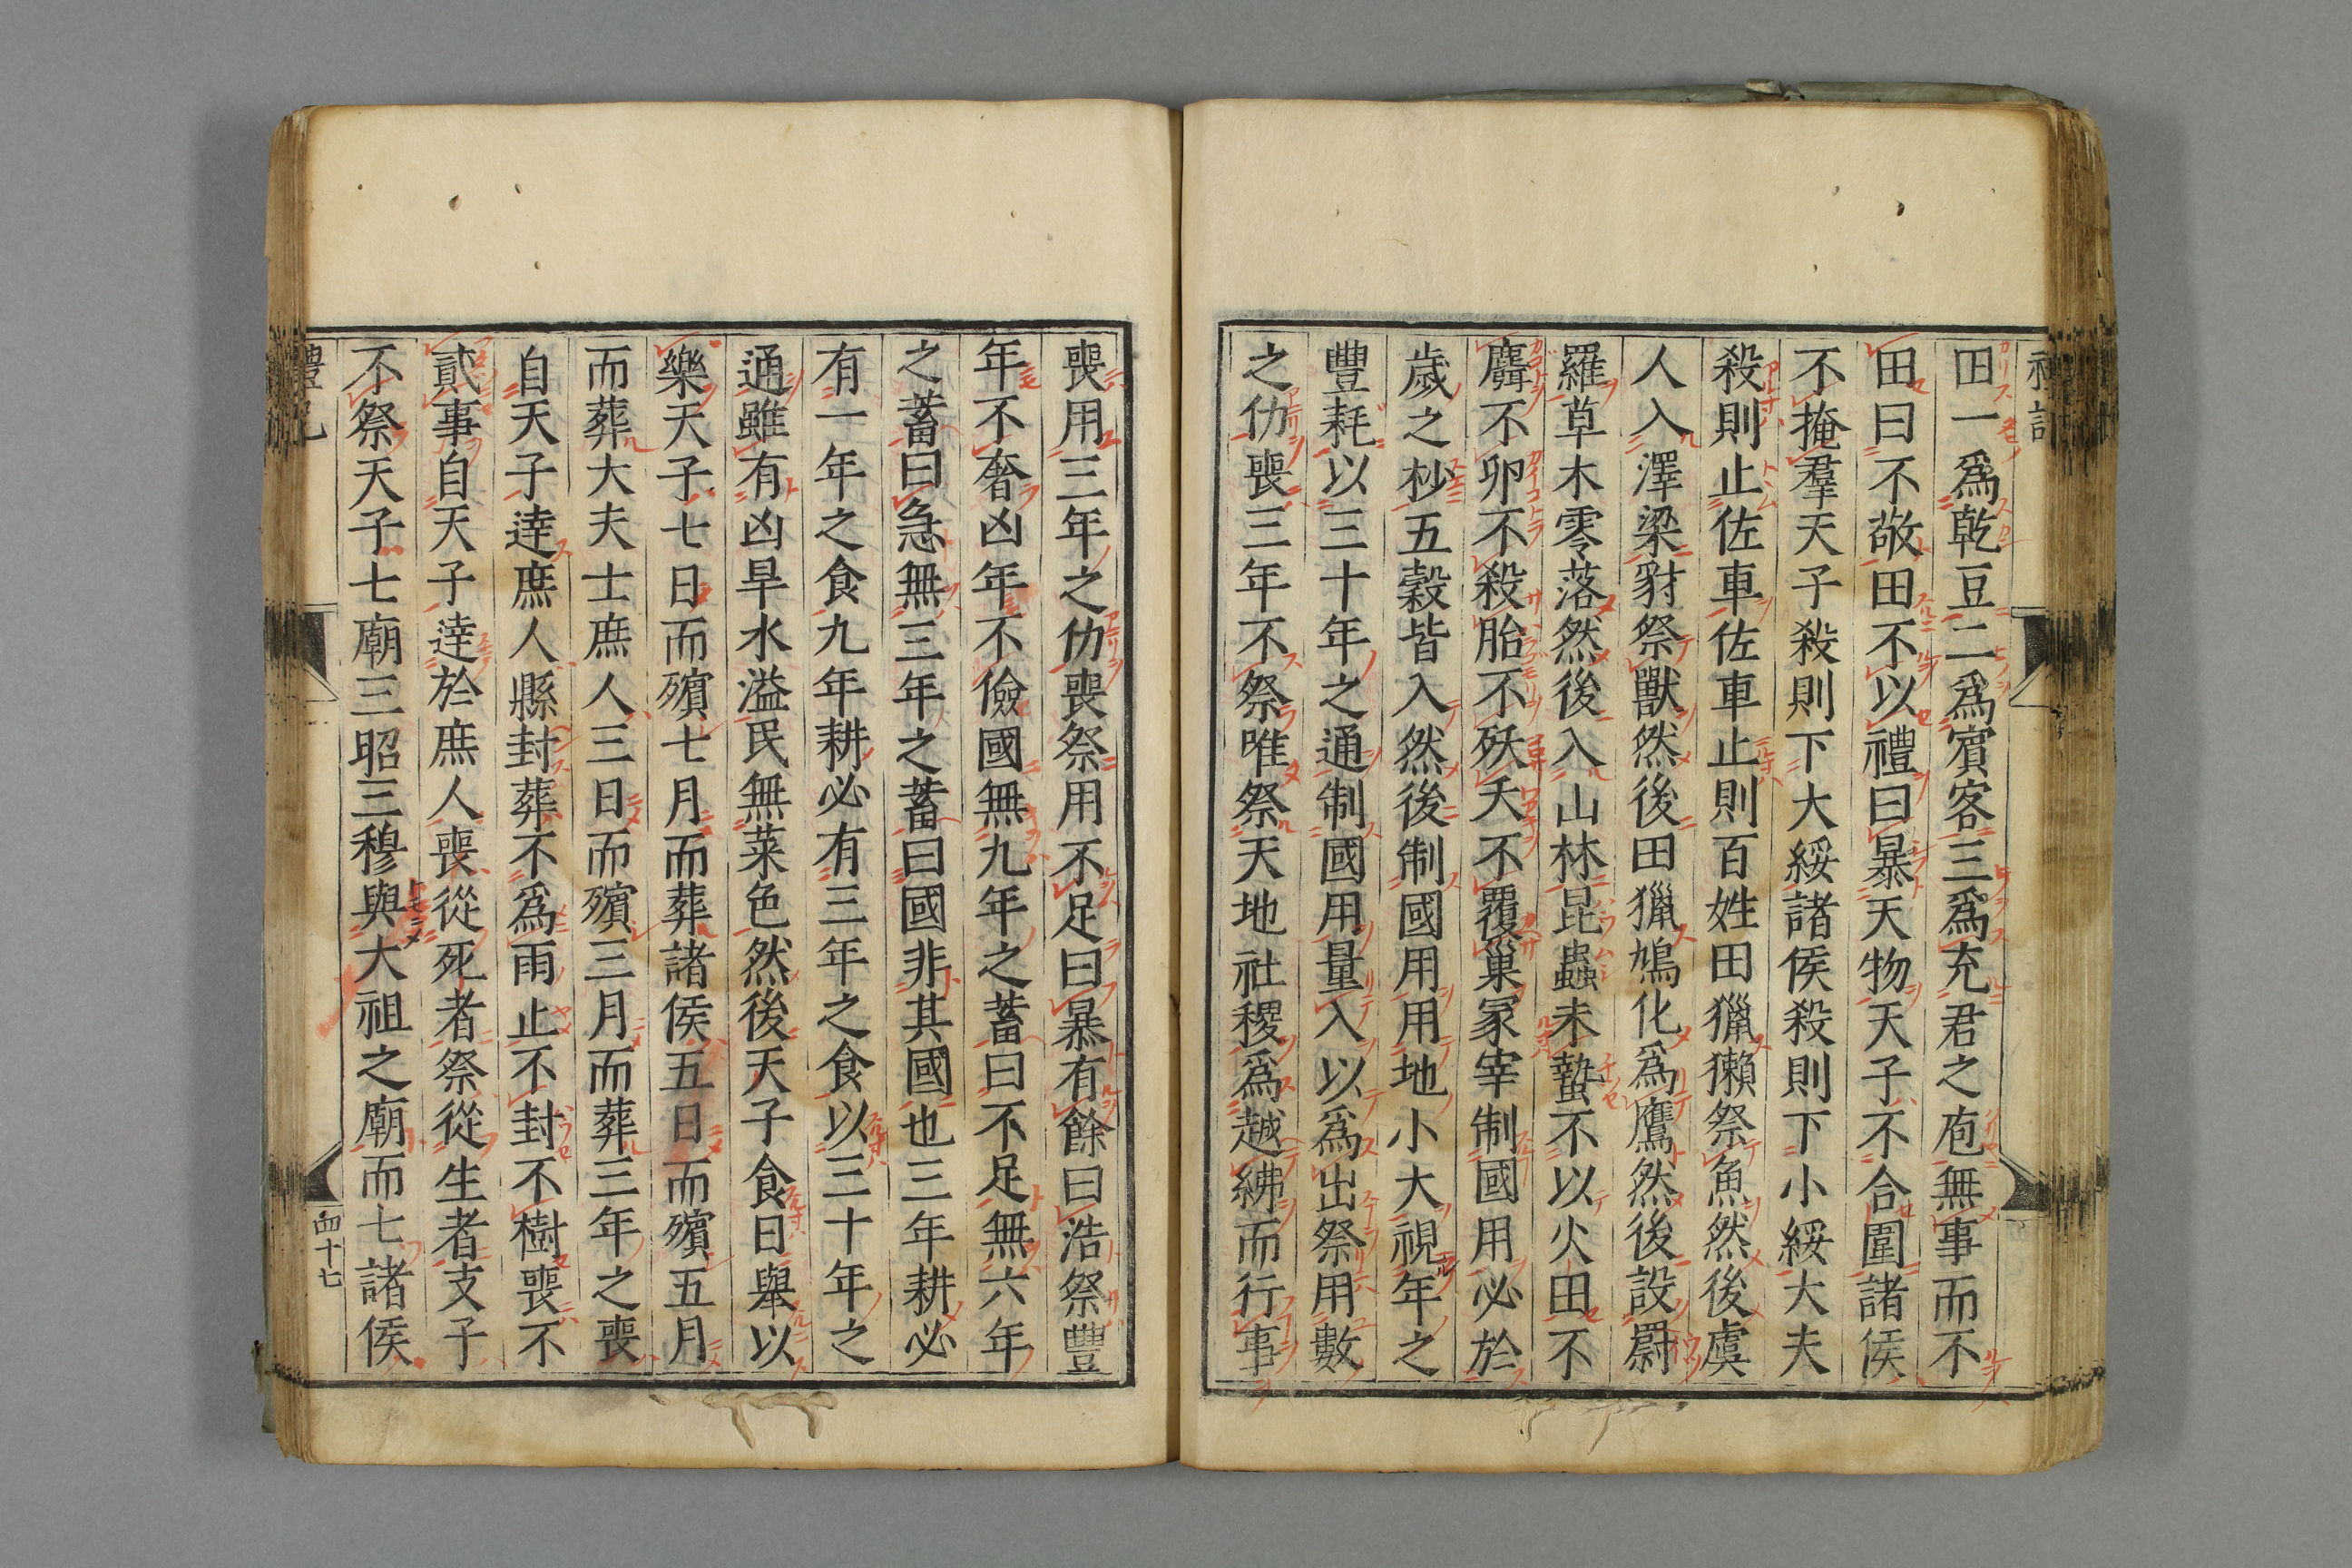 田一爲乾豆二爲賓客三爲充君之庖無事而不
田曰不敬田不以禮曰暴天物天子不合圍諸侯
不掩羣天子殺則下大綏諸侯殺則下小綏大夫
殺則止佐車佐車止則百姓田獵獺祭魚然後虞
人入澤梁豺祭獸然後田獵鳩化爲鷹然後設罻
羅草木零落然後入山林昆蟲未蟄不以火田不
麛不卵不殺胎不殀夭不覆巢冢宰制國用必於
歲之杪五穀皆入然後制國用用地小大視年之
豐耗以三十年之通制國用量入以爲出祭用數
之仂喪三年不祭唯祭天地社稷爲越紼而行事
喪用三年之仂喪祭用不足曰暴有餘曰浩祭豐
年不奢凶年不儉國無九年之蓄曰不足無六年
之蓄曰急無三年之蓄曰國非其國也三年耕必
有一年之食九年耕必有三年之食以三十年之
通雖有凶旱水溢民無菜色然後天子食日舉以
樂天子七日而殯七月而葬諸侯五日而殯五月
而葬大夫士庶人三日而殯三月而葬三年之喪
自天子達庶人縣封葬不爲雨止不封不樹喪不
貳事自天子達於庶人喪從死者祭從生者支子
不祭天子七廟三昭三穆與大祖之廟而七諸侯
禮記
四十七